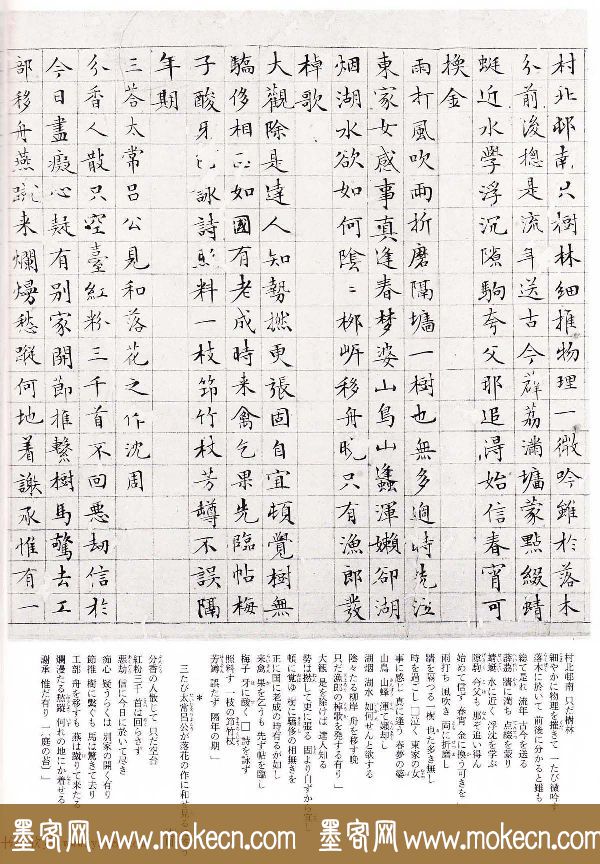 村北邨南只樹林細推物理一微吟雖於落木
分前後總是流年送古今薜荔滿墻蒙點綴蜻
蜓近水學浮沉隙駒夸父那追得始信春宵可
換金
雨打風吹兩折磨隔墻一樹也無多過時泣
東家女感事真逢春梦婆山鳥山蠭渾嬾卻湖
烟湖水欲如何陰〻栁岍移舟晚只有漁郎發
棹歌
大觀除是達人知勢撚更張固自宜頓覺樹無
驕侈相正如國有老成時来禽乞果先臨帖梅
子酸牙詠詩照料一枝笻竹枝芳罇不誤隔
年期
三荅太常呂公見和落花之作沈周
分香人散只空臺紅粉三千首不回惡劫信於
今日盡癡心疑有別家開節推繫樹馬驚去工
部移舟燕蹴来爛熳愁蹤何地着謝承惟有一
村北邨南 只だ樹林
細やかに物理を推して 一たび微吟す
落木に於いて 前後に分かると雖も
総て是れ 流年 古今を送る
薜荔 墻に満ち 点綴を蒙り
蜻蜓 水に近く 浮沈を学ぶ
隙駒 夸父も 那ぞ追い得ん
始めて信ず 春宵 金に換う可きを」
雨打ち 風吹き 両に折磨し
墻を隔つる一樹 也た多き無し
時を過ごし □泣く 東家の女
事に感じ 真に逢う 春夢の婆
山鳥 山蜂 渾て嬾卻し
湖烟 湖水 如何せんと欲する
陰々たる柳岸 舟を移す晩
只だ漁郎の棹歌を発する有り」
大観 是を除けば 達人知る
勢は撚って更に張る 固より自ずから宜し
頓に覚ゆ 樹に驕侈の相無きを
正に国に老成の時有るが如し
来禽 果を乞うも 先ず帖を臨し
梅子 牙に酸く □ 詩を詠ず
照料す 一枝の笻竹枝
芳罇 誤たず 隔年の期」
*
分香の人散じて 只だ空台
紅粉三千 首は回らさず
悪劫 信に今日に於いて尽き
痴心 疑うらくは 別家の開く有り
節推 樹に繫ぐも 馬は驚きて去り
工部 舟を移すも 燕は蹴りて来たる
爛漫たる愁蹤 何れの地にか着せる
謝承 惟だ有り 一庭の苔」
墨客网 www.mokecn.com 墨客网 www.mokecn.com